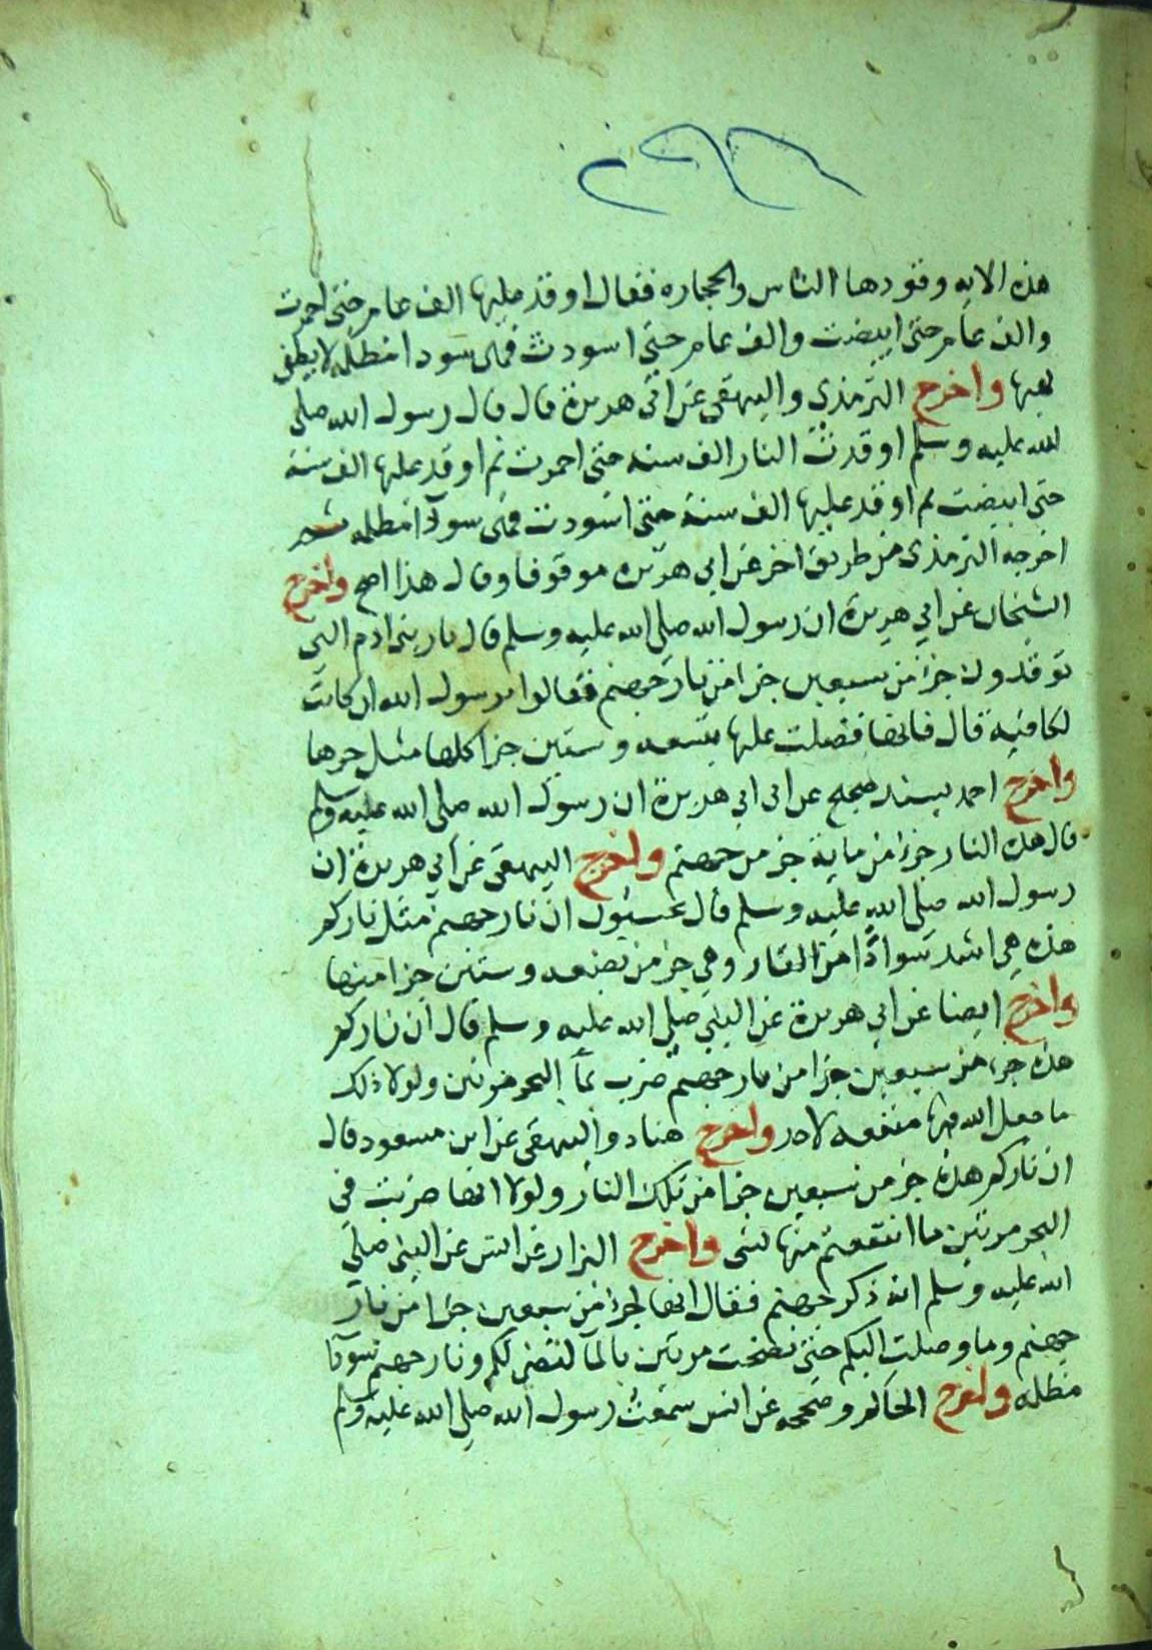 هذه الايه وقودها الناس والحجاره فقال اوقد عليها الف عام حتى احمرت
والف عام حتى ابيضت والف عام حتى اسودت فهى سودا مظلمه لا يطفى
لهبها واخرج الترمذى والبيهقى عن ابى هريرة قال قال رسول الله صلى
الله عليه وسلم اوقدت النار الف سنه حتى احمرت ثم اوقد عليها الف سنة
حتى ابيضت ثم اوقد عليها الف سنة حتى اسودت فهى سودآ مظلمه ثم
اخرجه الترمذى من طريق اخر عن ابي هريره موقوفا وقال هذا اصح واخرج
الشيخان عن ابي هريرة ان رسول الله صلى الله عليه وسلم قال نار بنى ادم التي
توقدون جزء من سبعين جزا من نار جهنم فقالوا يرسول الله ان كانت
لكافية قال فانها فضلت عليها بتسعه وستين جزا كلها مثل حرها
واخرج احمد بسند صحيح عن ابى ابي هريرة ان رسول الله صلى الله عليه وسلم
قال هذه النار جزء من ماية جز من جهنم واخرج البيهقى عن ابي هريرة ان
رسول الله صلى الله عليه وسلم قال تحسبون ان نار جهنم مثل ناركم
هذه هي اشد سوادًا من القار وهي جز من بضعه وستين جزا منها
واخرج ايضا عن ابي هريرة عن النبي صلى الله عليه وسلم قال ان ناركم
هذه جزء من سبعين جزا من نار جهنم ضرب بمآ البحر مرتين ولولا ذلك
ما جعل الله فيها منفعه لاحد واخرج هناد والبيهقى عن ابن مسعود قال
ان ناركم هذه جز من سبعين جزا من تلك النار ولولا انها ضربت فى
البحر مرتين ما انتفعتم منها لشى واخرج البزار عن انس عن النبي صلى
الله عليه وسلم انه ذكر جهنم فقال انها لجزء من سبعين جزا من نار
جهنم وما وصلت اليكم حتى نضحت مرتين بالمآ لتضى لكم ونار جهنم سودآ
مظلمه واخرج الحاكم وصححه عن انس سمعت رسول الله صلى الله عليه وسلم